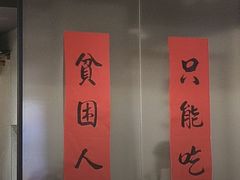 貧困人
只能吃